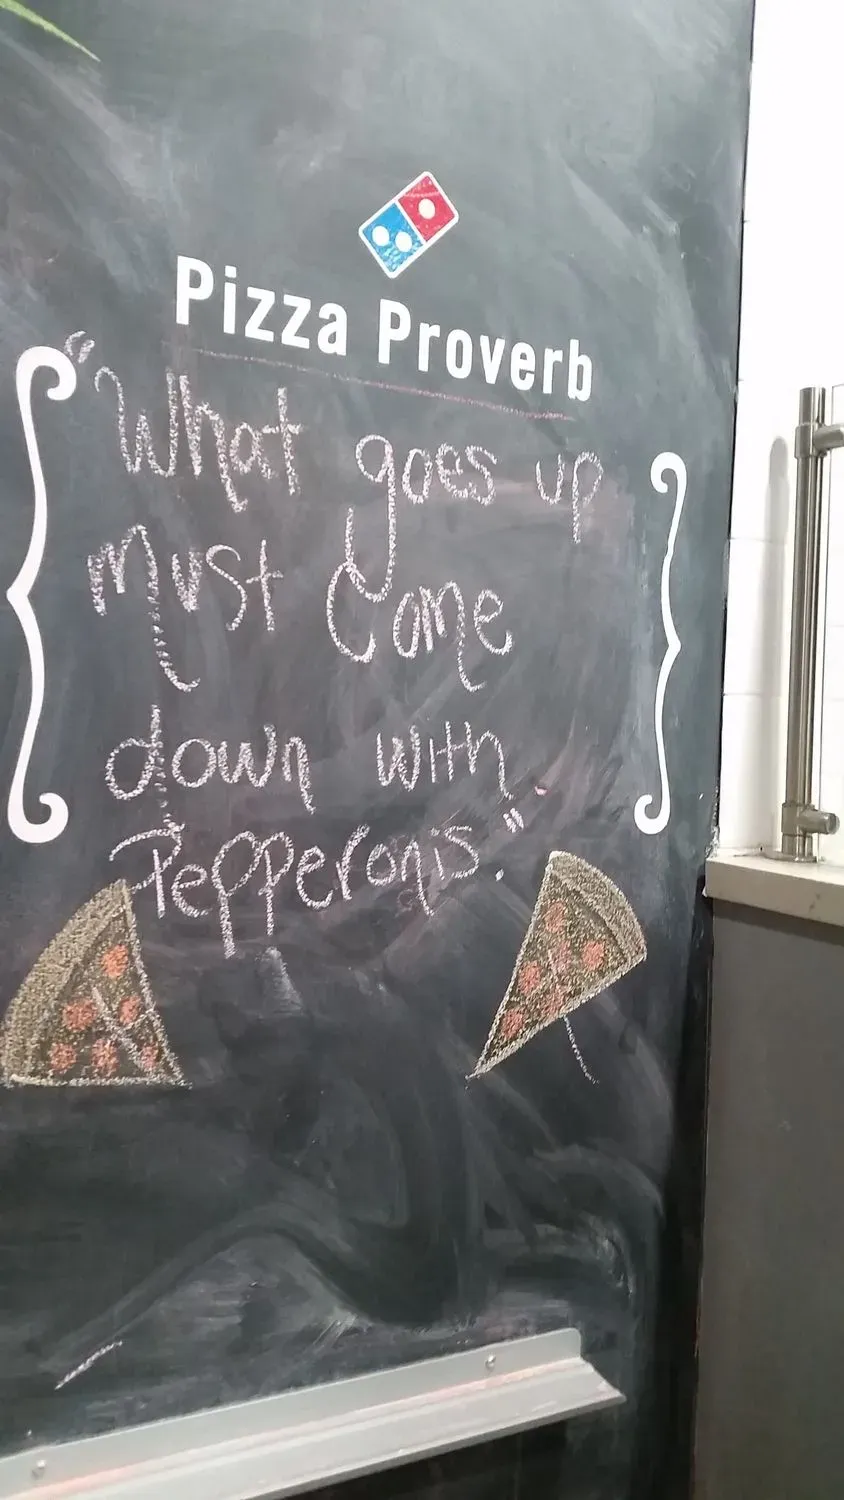 Pizza Proverb
"What goes up
Must Come
down with
Pepperonis."